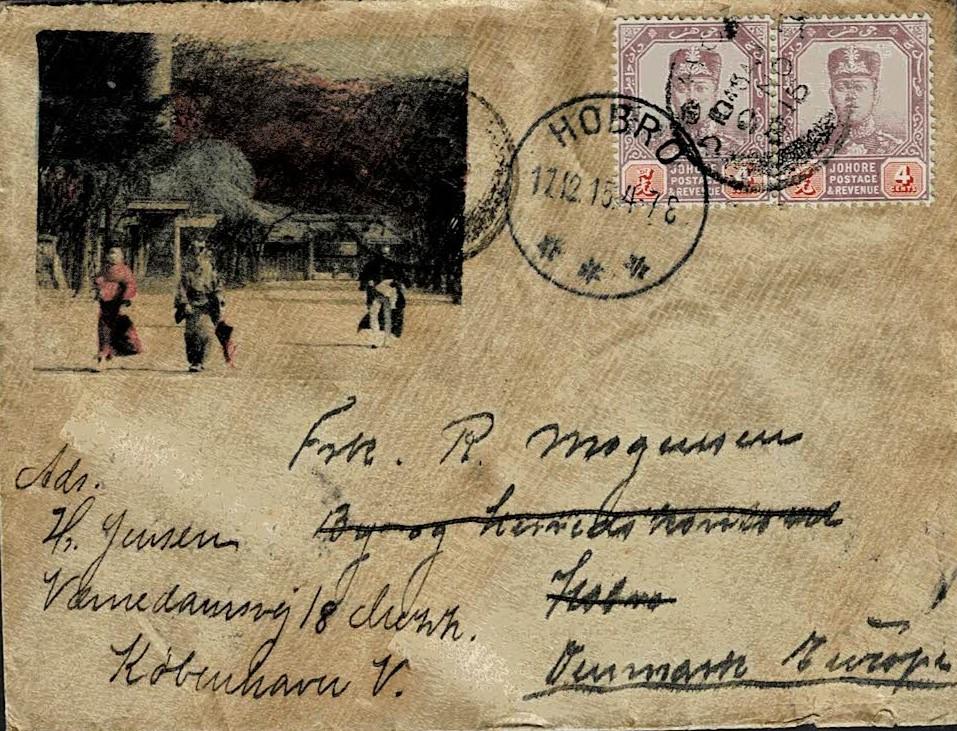 HOBRO
17.12.15.4-7E
JOHORE
POSTAGE
& REVENUE
4
CENTS
JOHORE
POSTAGE
& REVENUE
4
CENTS
Frk. R. Mogensen
By- og Herredskontoret
Hobro
Denmark Europe
Adr.
H. Jensen
Værnedamsvej 18
København V.